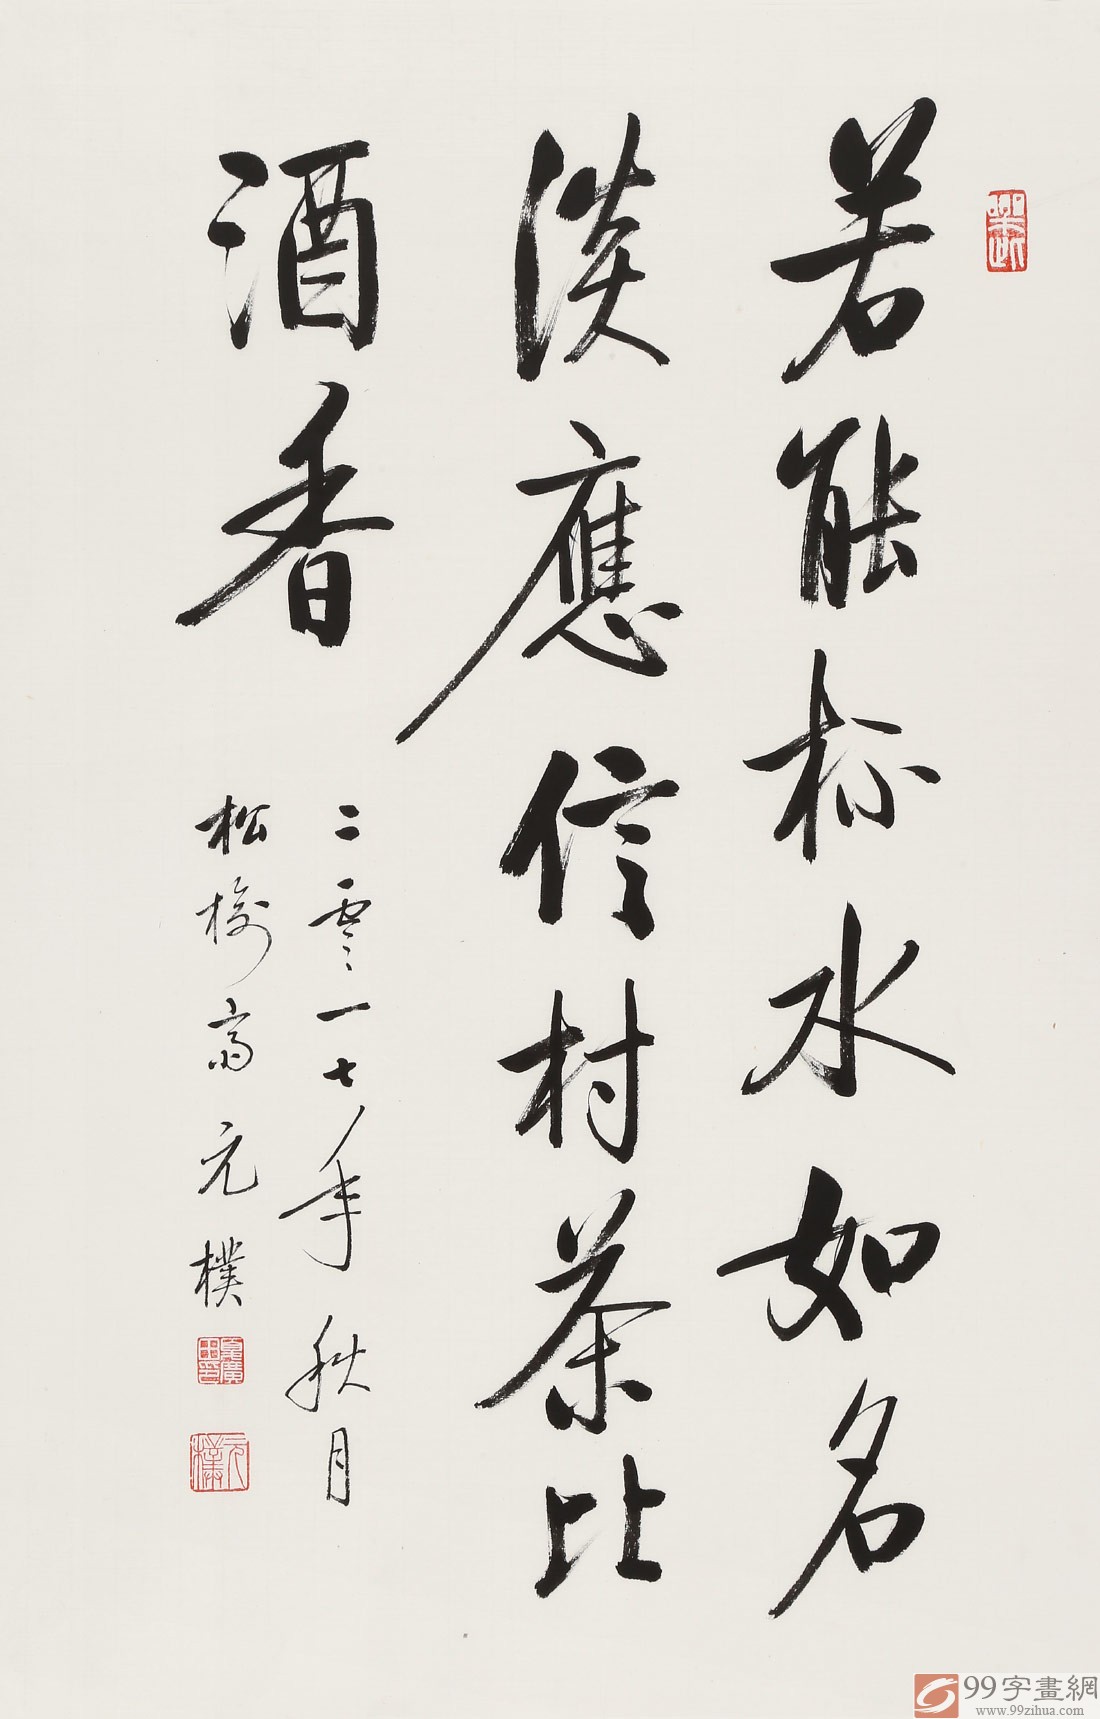 若能杯水如名
淡應信村茶比
酒香
二零一七年秋月
松 齋元樸
元樸
99字畫網
www.99zihua.com